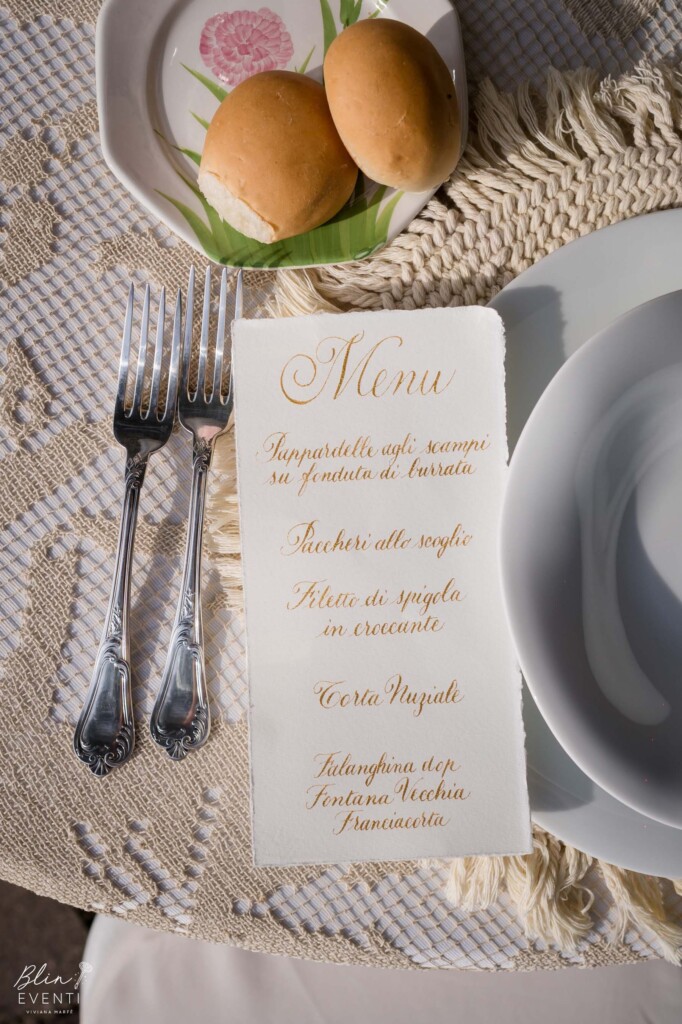 Menu
Pappardelle agli scampi
su fonduta di burrata
Paccheri allo scoglio
Filetto di spigola
in croccante
Torta Nuziale
Falanghina dop
Fontana Vecchia
Franciacorta
Blin
EVENTI
VIVIANA MARFÉ